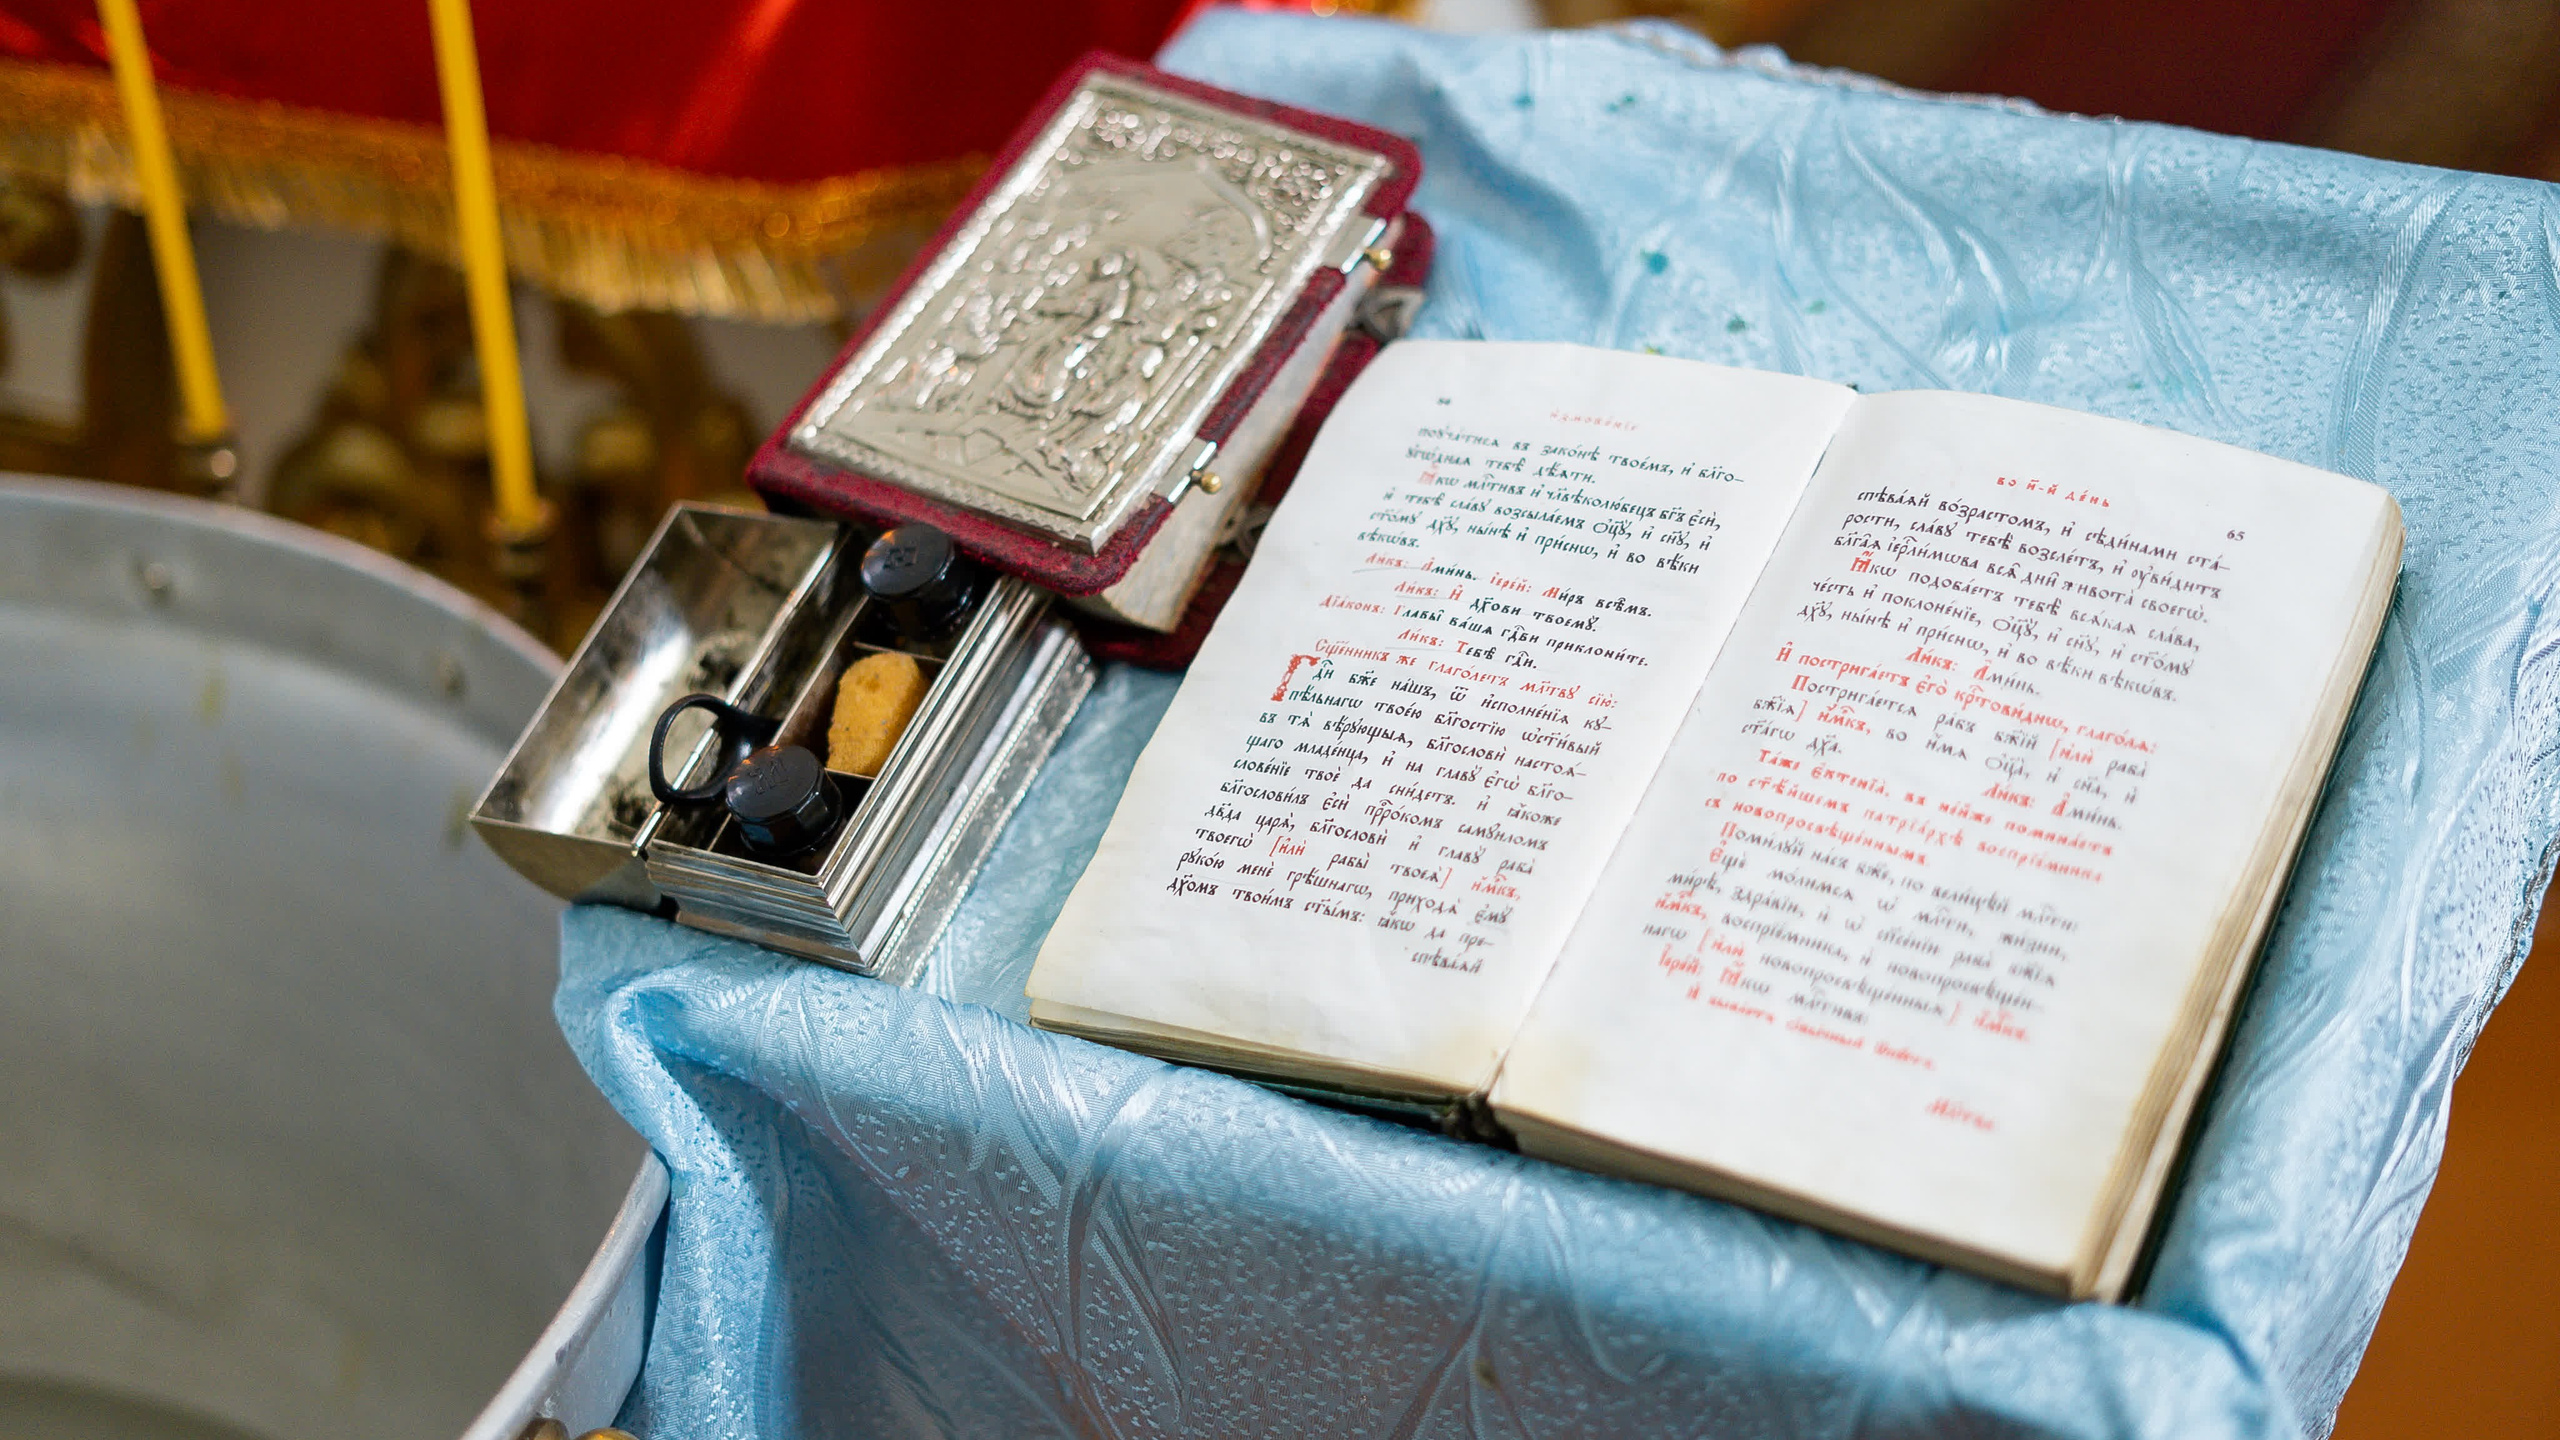 поꙋча́тисѧ въ зако́нѣ твое́мъ, и҆ бл҃го-
ᲂу҆гѡ́днаѧ тебѣ̀ дѣ́ѧти.
Ꙗ҆́кѡ млⷭ҇тивъ и҆ чл҃вѣколю́бецъ бг҃ъ є҆сѝ,
и҆ тебѣ̀ сла́вꙋ возсыла́емъ Ѻ҆ц҃ꙋ̀, и҆ сн҃ꙋ, и҆
ст҃о́мꙋ дх҃ꙋ, ны́нѣ и҆ при́снѡ, и҆ во вѣ́ки
вѣкѡ́въ.
Ли́къ: А҆ми́нь. І҆ере́й: Ми́ръ всѣ̑мъ.
Ли́къ: И҆ дх҃ови твоемꙋ̀.
Дїа́конъ: Главы̑ ва́шѧ гдⷭ҇ви приклони́те.
Ли́къ: Тебѣ̀ гдⷭ҇и.
Сщ҃е́нникъ же глаго́летъ мл҃твꙋ сїю̀:
Гдⷭ҇и бж҃е на́шъ, ѿ и҆сполне́нїѧ кꙋ-
пѣ́льнагѡ твое́ю бл҃гостїю ѡ҆ст҃и́вый
въ тѧ̀ вѣ́рꙋющыѧ, бл҃гословѝ настоѧ́-
щаго младе́нца, и҆ на главꙋ̀ є҆гѡ̀ бл҃го-
слове́нїе твоѐ да сни́детъ. и҆ ꙗ҆́коже
бл҃гослови́лъ є҆сѝ прⷪ҇ро́комъ самꙋи́ломъ
дв҃да царѧ̀, бл҃гословѝ и҆ главꙋ̀ раба̀
твоегѡ̀ [и҆лѝ рабы̀ твоеѧ̀] и҆́м҃къ,
рꙋко́ю менѐ грѣ́шнагѡ, приходѧ̀ є҆мꙋ̀
дх҃омъ твои́мъ ст҃ы́мъ: ꙗ҆́кѡ да пре-
спѣва́ѧй
во и҃-й де́нь
65
спѣва́ѧй во́зрастомъ, и҆ сѣди́нами ста́-
рости, сла́вꙋ тебѣ̀ возсле́тъ, и҆ ᲂу҆ви́дитъ
бл҃га̑ѧ і҆ерⷭ҇ли́мѡва всѧ̑ дни̑ живота̀ своегѡ̀.
Ꙗ҆́кѡ подоба́етъ тебѣ̀ всѧ́каѧ сла́ва,
че́сть и҆ поклоне́нїе, Ѻ҆ц҃ꙋ̀, и҆ сн҃ꙋ, и҆ ст҃о́мꙋ
дх҃ꙋ, ны́нѣ и҆ при́снѡ, и҆ во вѣ́ки вѣкѡ́въ.
Ли́къ: А҆ми́нь.
И҆ постриға́етъ є҆го̀ крⷭ҇тови́днѡ, глаго́лѧ:
Пострига́етсѧ ра́бъ бж҃їй [и҆лѝ раба̀
бж҃їѧ] и҆́м҃къ, во и҆́мѧ Ѻ҆ц҃а̀, и҆ сн҃а, и҆
ст҃а́гѡ дх҃а.
Ли́къ: А҆ми́нь.
Та́же є҆ктенїа̀, въ не́йже помина́етъ
по ст҃ѣ́йшемъ патрїа́рхѣ воспрїе́мника
съ новопросвѣще́ннымъ.
Поми́лꙋй на́съ бж҃е, по вели́цѣй млⷭ҇ти:
Є҆щѐ мо́лимсѧ ѡ҆ млⷭ҇ти, жи́зни,
ми́рѣ, здра́вїи, и҆ ѡ҆ сп҃се́нїи раба̀ бж҃їѧ
и҆́м҃къ, воспрїе́мника, и҆ новопросвѣще́н-
нагѡ [и҆лѝ новопросвѣще́нныѧ] и҆́м҃къ.
І҆ере́й: Ꙗ҆́кѡ млⷭ҇тивъ:
И҆ быва́етъ